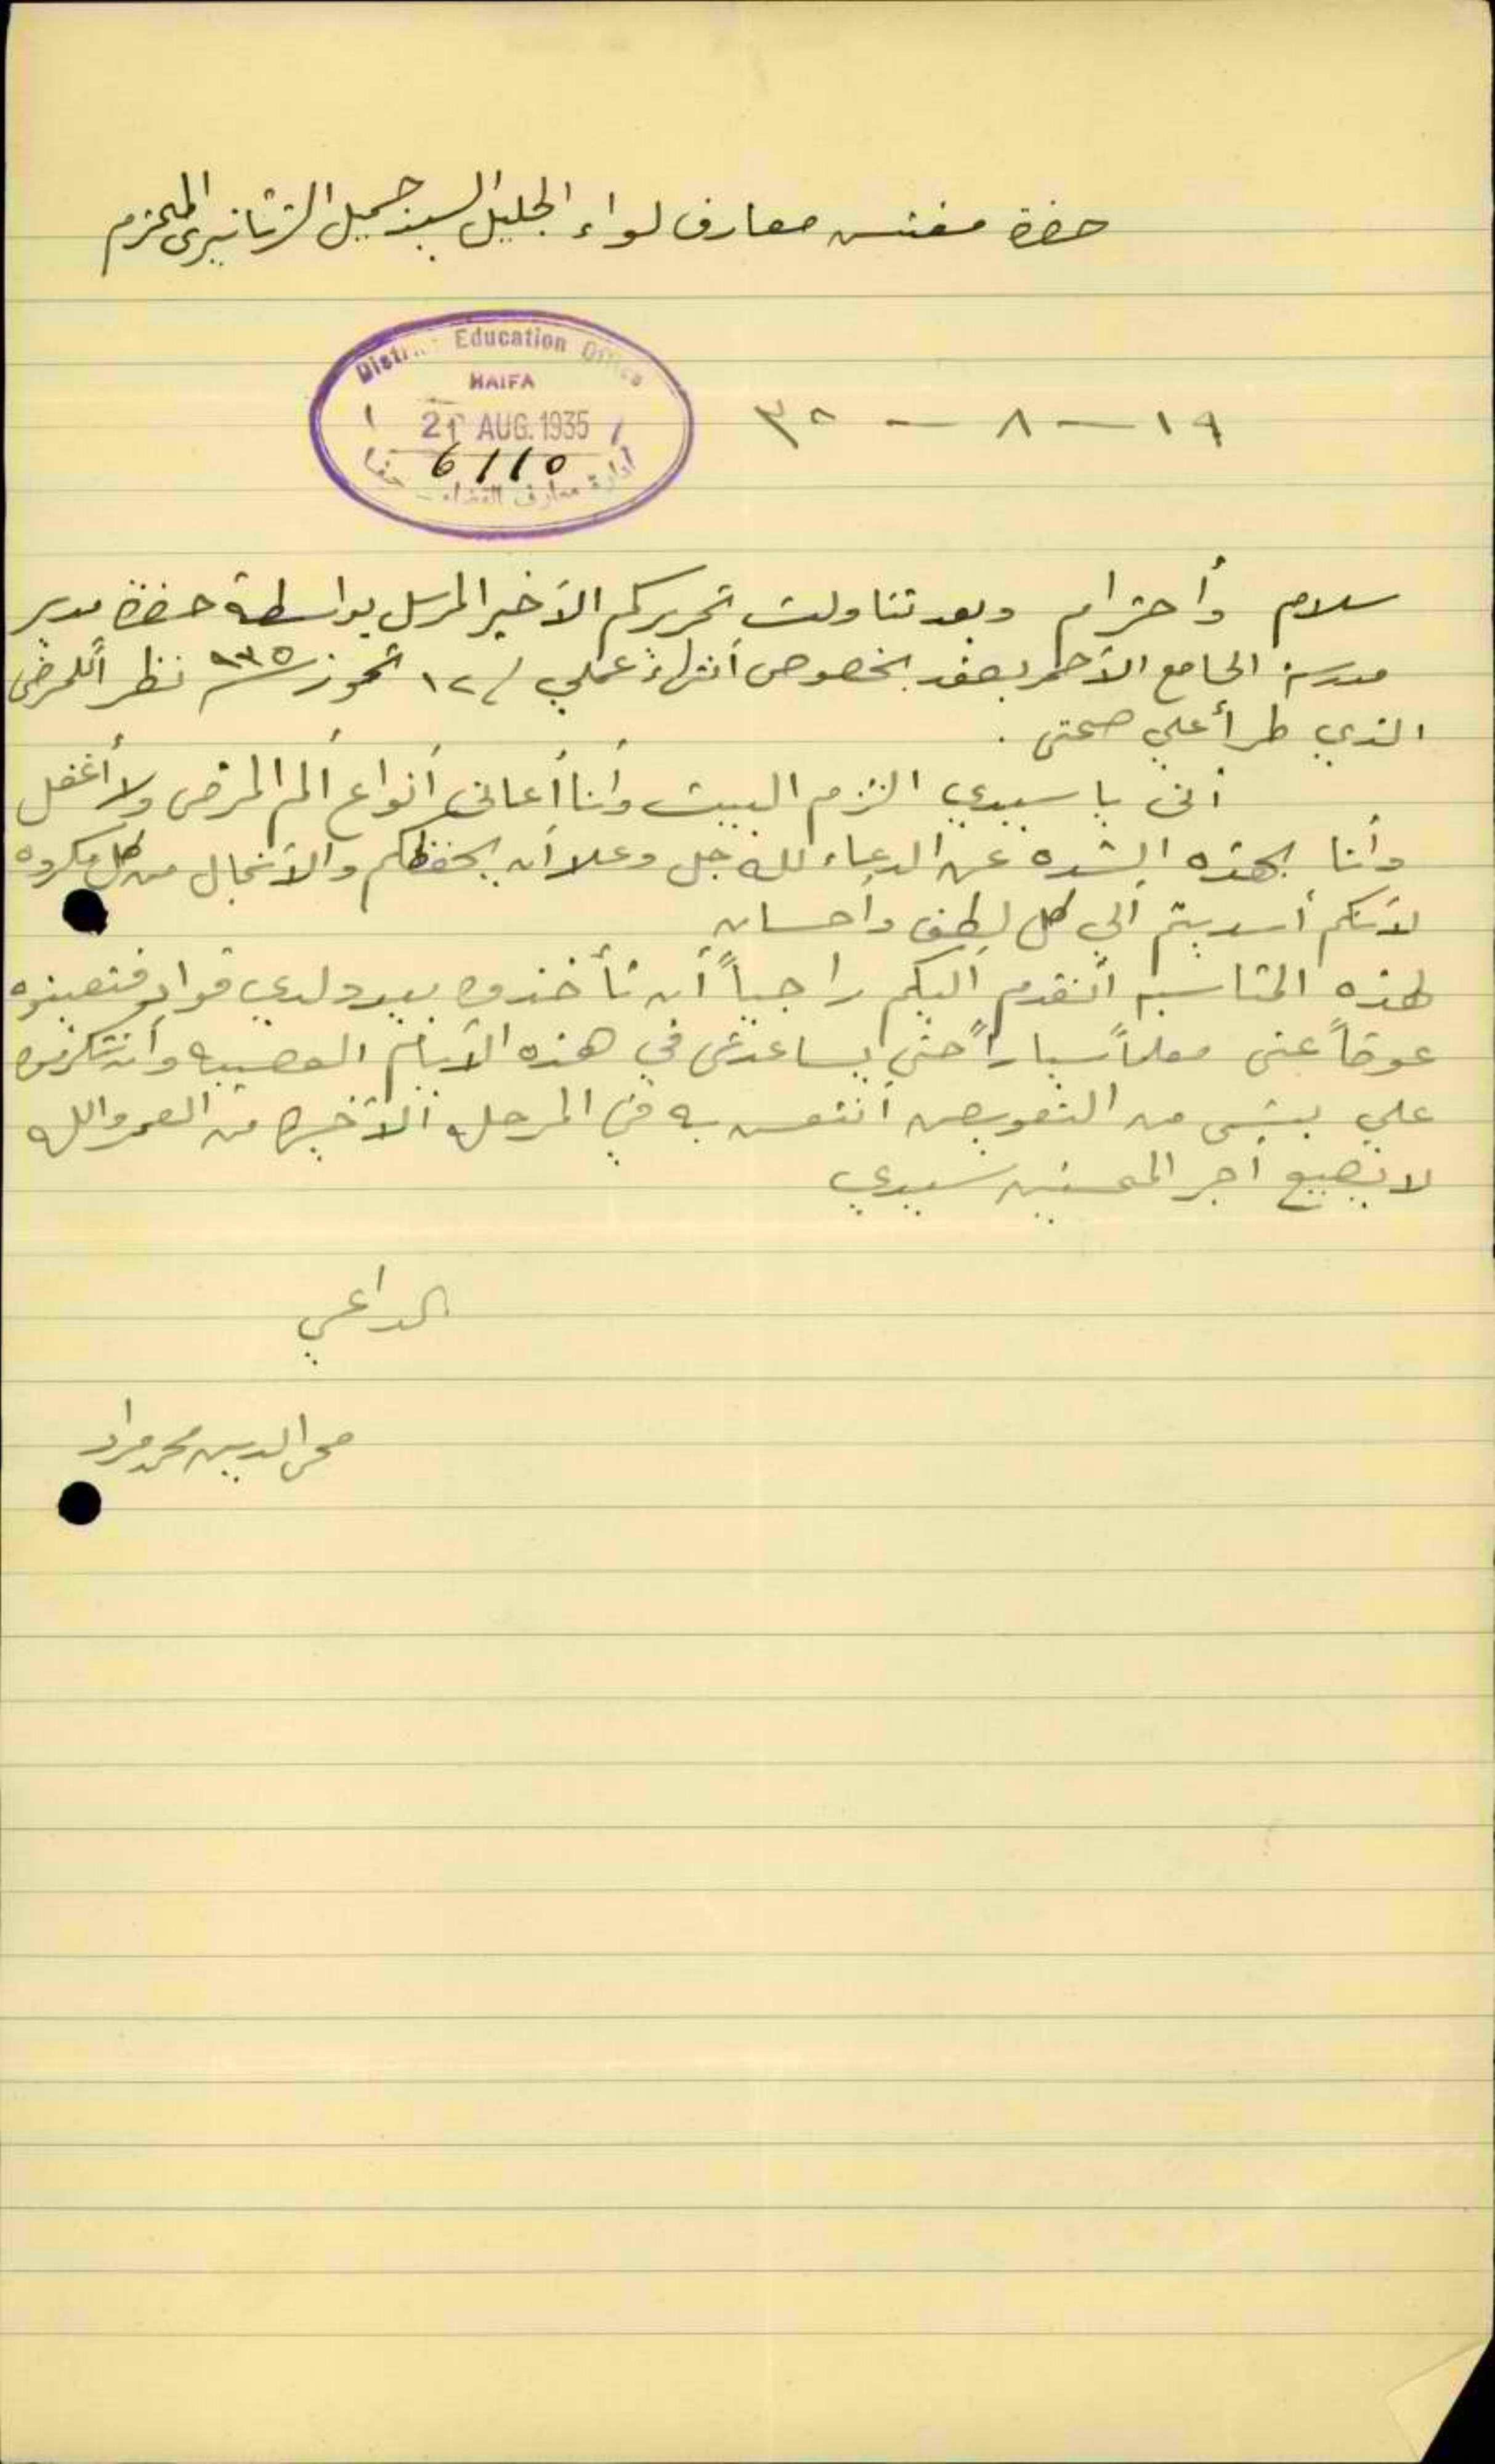 حضرة مفتش معارف لواء الجليل السيد جميل المحترم
District Education Office
HAIFA
21 AUG. 1935
6110
ادارة معارف القضاء - حيفا
١٩ - ٨ - ٣٥
سلام وأحترام وبعد تناولت تحريركم الأخير المرسل بواسطة حضرة مدير
مدرسة الجامع الأحمر بصفد بخصوص أنتهاء عملي ١٢ تموز سنة ٩٣٥ نظراً للمرض
الذي طرأ علي صحتي .
أني يا سيدي التزم البيت وأنا أعاني أنواع ألم المرض ولا أغفل
وأنا بهذه الشده عن الدعاء لله جل وعلا أن يحفظكم والأنجال من كل مكروه
لأنكم أسديتم ألي كل لطف وأحسان
لهذه المناسبه أتقدم أليكم راجياً أن تأخذوا بيد ولدي فؤاد فتعينوه
عوضاً عني معلماً سياراً حتى يساعدني في هذه الأيام العصيبه وأن تتكرموا
علي بشي من التعويض أنتعش به في المرحله الأخيره من العمر والله
لا يضيع أجر المحسنين سيدي
الداعي
محي الدين محمد مراد